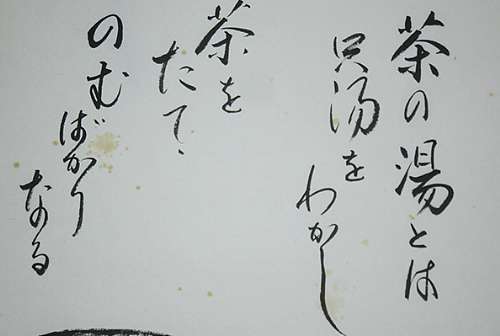 茶の湯とは
只湯を
わかし
茶を
たて、
のむ
ばかり
なる